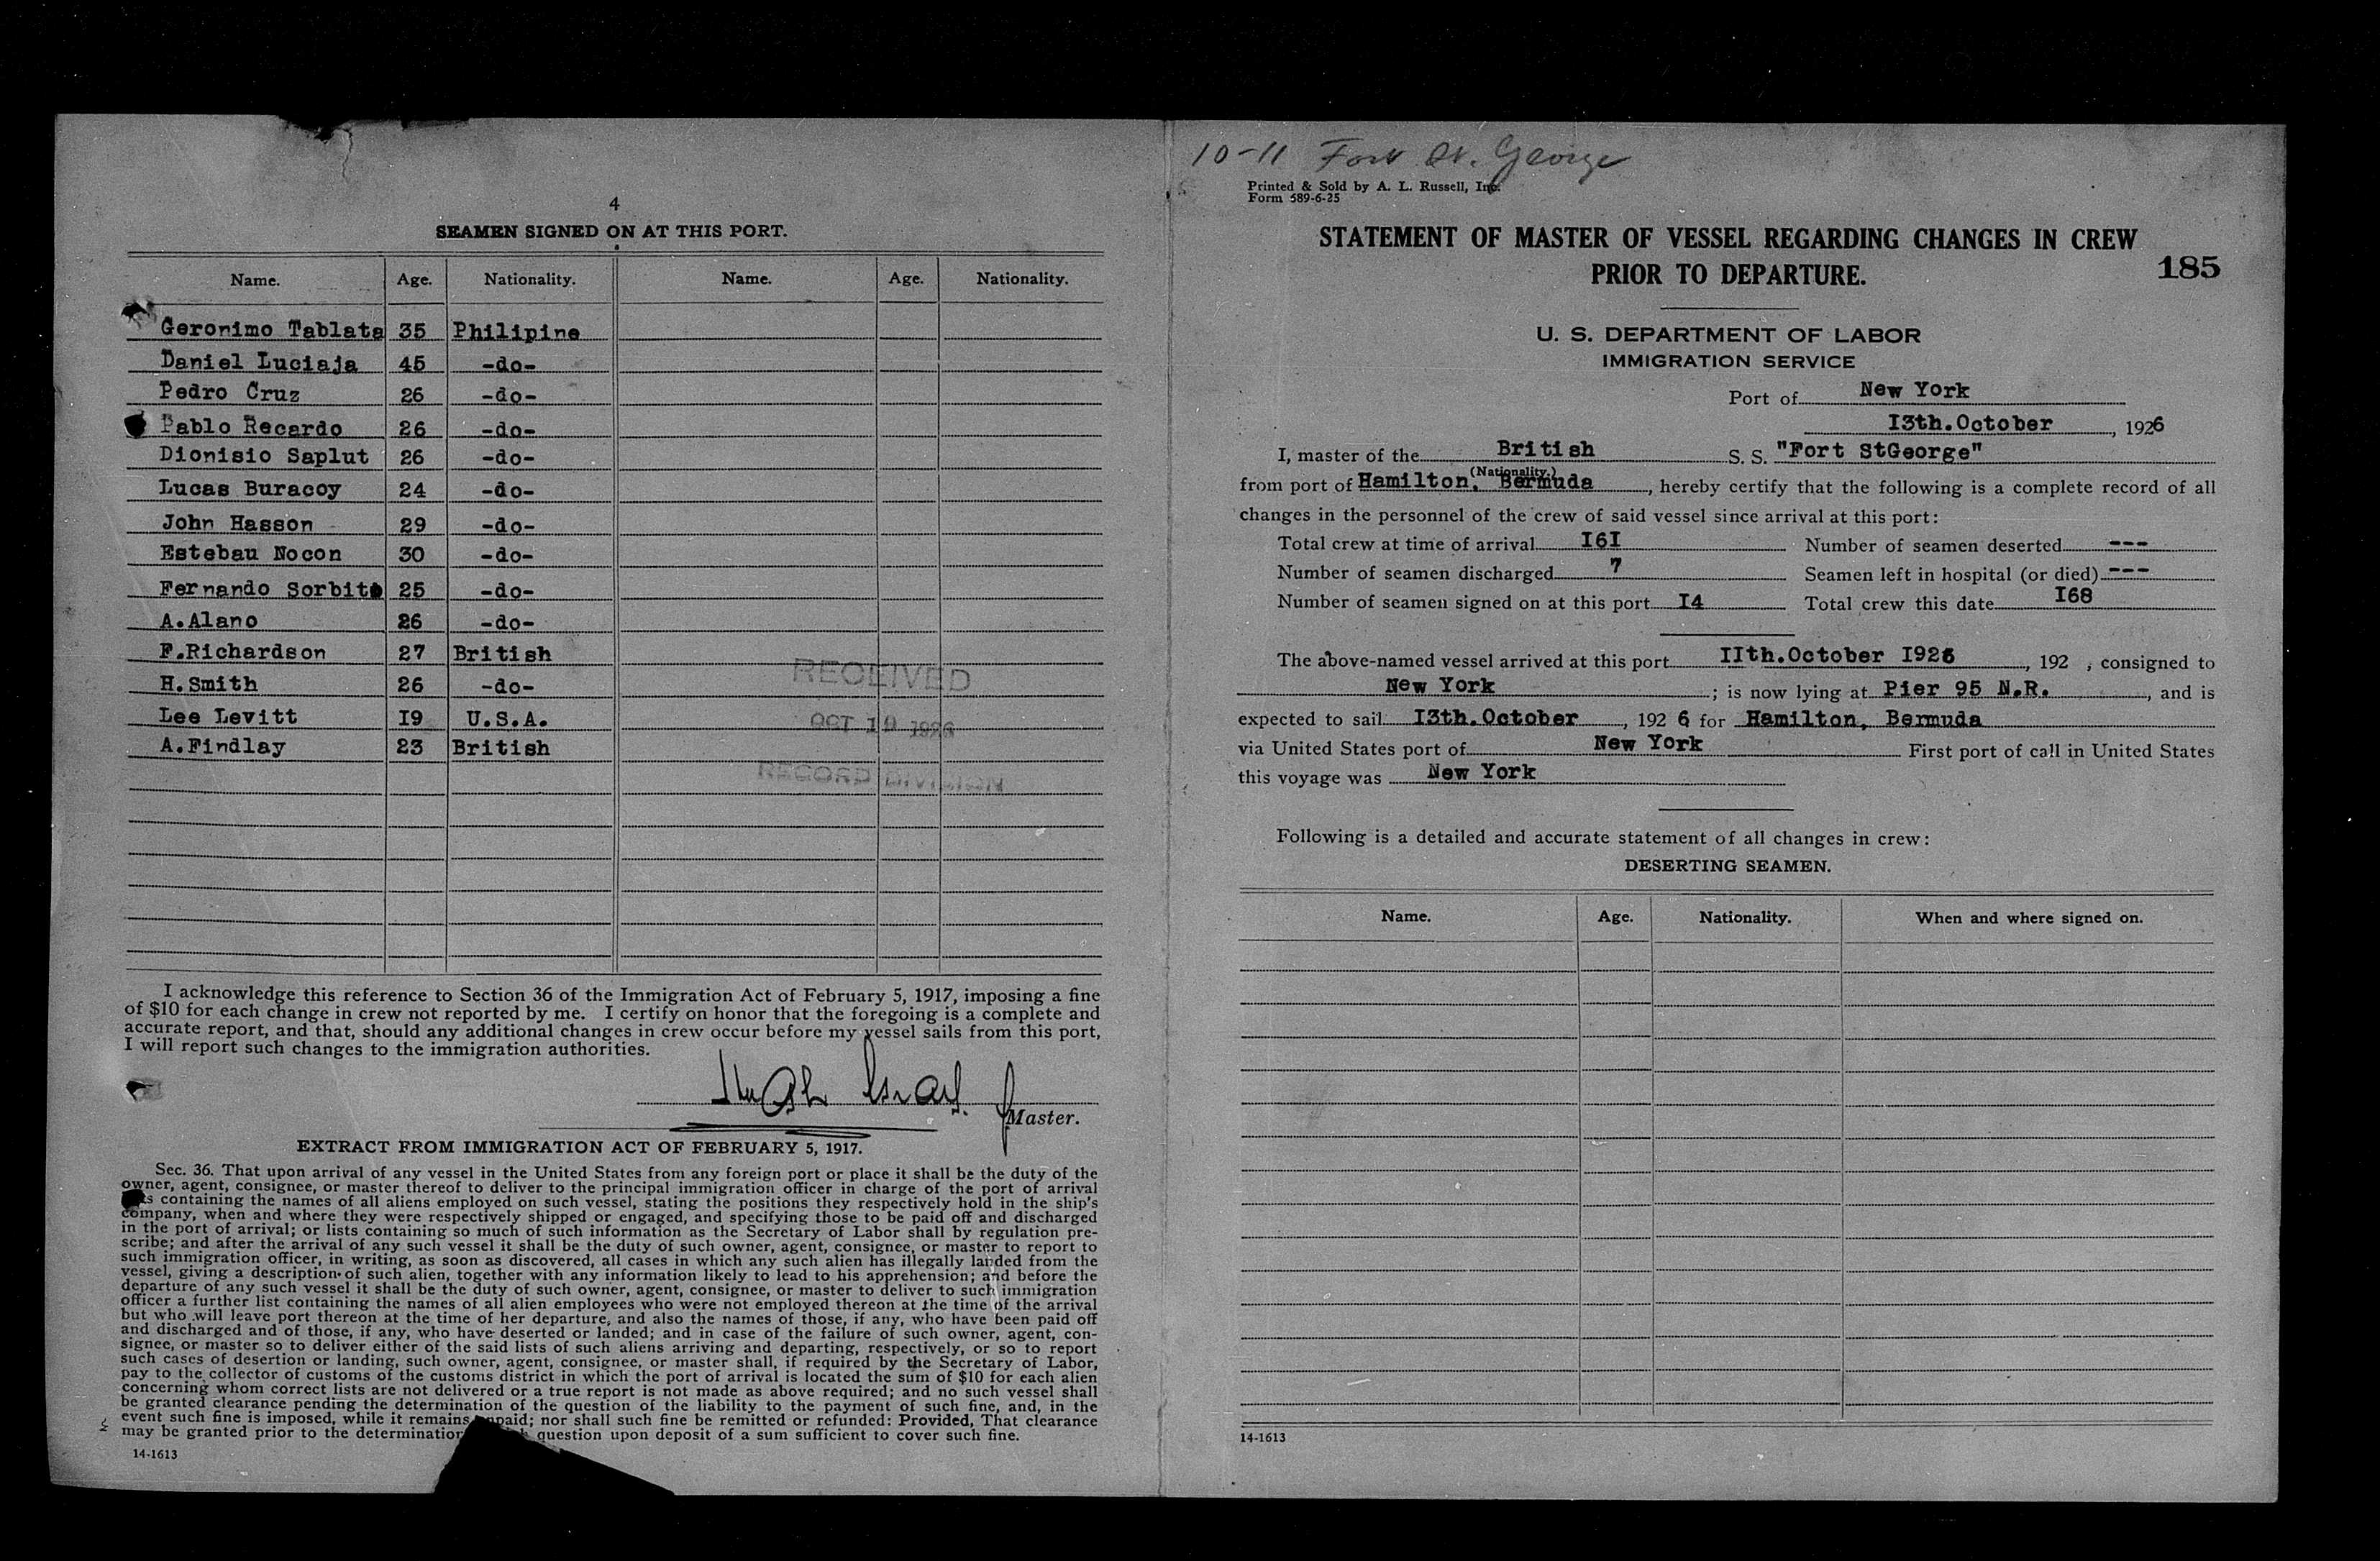 4
SEAMEN SIGNED ON AT THIS PORT.
Name. Age. Nationality. Name. Age. Nationality.
Geronimo Tablata 35 Philipine
Daniel Luciaja 45 -do-
Pedro Cruz 26 -do-
Pablo Recardo 26 -do-
Dionisio Saplut 26 -do-
Lucas Buracoy 24 -do-
John Hasson 29 -do-
Estebau Nocon 30 -do-
Fernando Sorbito 25 -do-
A.Alano 26 -do-
F.Richardson 27 British
H.Smith 26 -do-
Lee Levitt I9 U.S.A.
A.Findlay 23 British
RECEIVED
OCT 19 1926
RECORD DIVISION
I acknowledge this reference to Section 36 of the Immigration Act of February 5, 1917, imposing a fine
of $10 for each change in crew not reported by me. I certify on honor that the foregoing is a complete and
accurate report, and that, should any additional changes in crew occur before my vessel sails from this port,
I will report such changes to the immigration authorities.
Master.
EXTRACT FROM IMMIGRATION ACT OF FEBRUARY 5, 1917.
Sec. 36. That upon arrival of any vessel in the United States from any foreign port or place it shall be the duty of the
owner, agent, consignee, or master thereof to deliver to the principal immigration officer in charge of the port of arrival
containing the names of all aliens employed on such vessel, stating the positions they respectively hold in the ship's
company, when and where they were respectively shipped or engaged, and specifying those to be paid off and discharged
in the port of arrival; or lists containing so much of such information as the Secretary of Labor shall by regulation pre-
scribe; and after the arrival of any such vessel it shall be the duty of such owner, agent, consignee, or master to report to
such immigration officer, in writing, as soon as discovered, all cases in which any such alien has illegally landed from the
vessel, giving a description of such alien, together with any information likely to lead to his apprehension; and before the
departure of any such vessel it shall be the duty of such owner, agent, consignee, or master to deliver to such immigration
officer a further list containing the names of all alien employees who were not employed thereon at the time of the arrival
but who will leave port thereon at the time of her departure, and also the names of those, if any, who have been paid off
and discharged and of those, if any, who have deserted or landed; and in case of the failure of such owner, agent, con-
signee, or master so to deliver either of the said lists of such aliens arriving and departing, respectively, or so to report
such cases of desertion or landing, such owner, agent, consignee, or master shall, if required by the Secretary of Labor,
pay to the collector of customs of the customs district in which the port of arrival is located the sum of $10 for each alien
concerning whom correct lists are not delivered or a true report is not made as above required; and no such vessel shall
be granted clearance pending the determination of the question of the liability to the payment of such fine, and, in the
event such fine is imposed, while it remains unpaid; nor shall such fine be remitted or refunded: Provided, That clearance
may be granted prior to the determination question upon deposit of a sum sufficient to cover such fine.
14-1613
10-11 Fort St. George
Printed & Sold by A. L. Russell, Inc.
Form 589-6-25
STATEMENT OF MASTER OF VESSEL REGARDING CHANGES IN CREW
PRIOR TO DEPARTURE.
185
U. S. DEPARTMENT OF LABOR
IMMIGRATION SERVICE
Port of New York
I3th.October, 1926
I, master of the British S. S. "Fort StGeorge"
(Nationality.)
from port of Hamilton, Bermuda, hereby certify that the following is a complete record of all
changes in the personnel of the crew of said vessel since arrival at this port:
Total crew at time of arrival I6I Number of seamen deserted ---
Number of seamen discharged 7 Seamen left in hospital (or died) ---
Number of seamen signed on at this port I4 Total crew this date I68
The above-named vessel arrived at this port IIth.October I926, 192 , consigned to
New York; is now lying at Pier 95 N.R., and is
expected to sail I3th.October, 192 6 for Hamilton, Bermuda
via United States port of New York First port of call in United States
this voyage was New York
Following is a detailed and accurate statement of all changes in crew:
DESERTING SEAMEN.
Name. Age. Nationality. When and where signed on.
14-1613